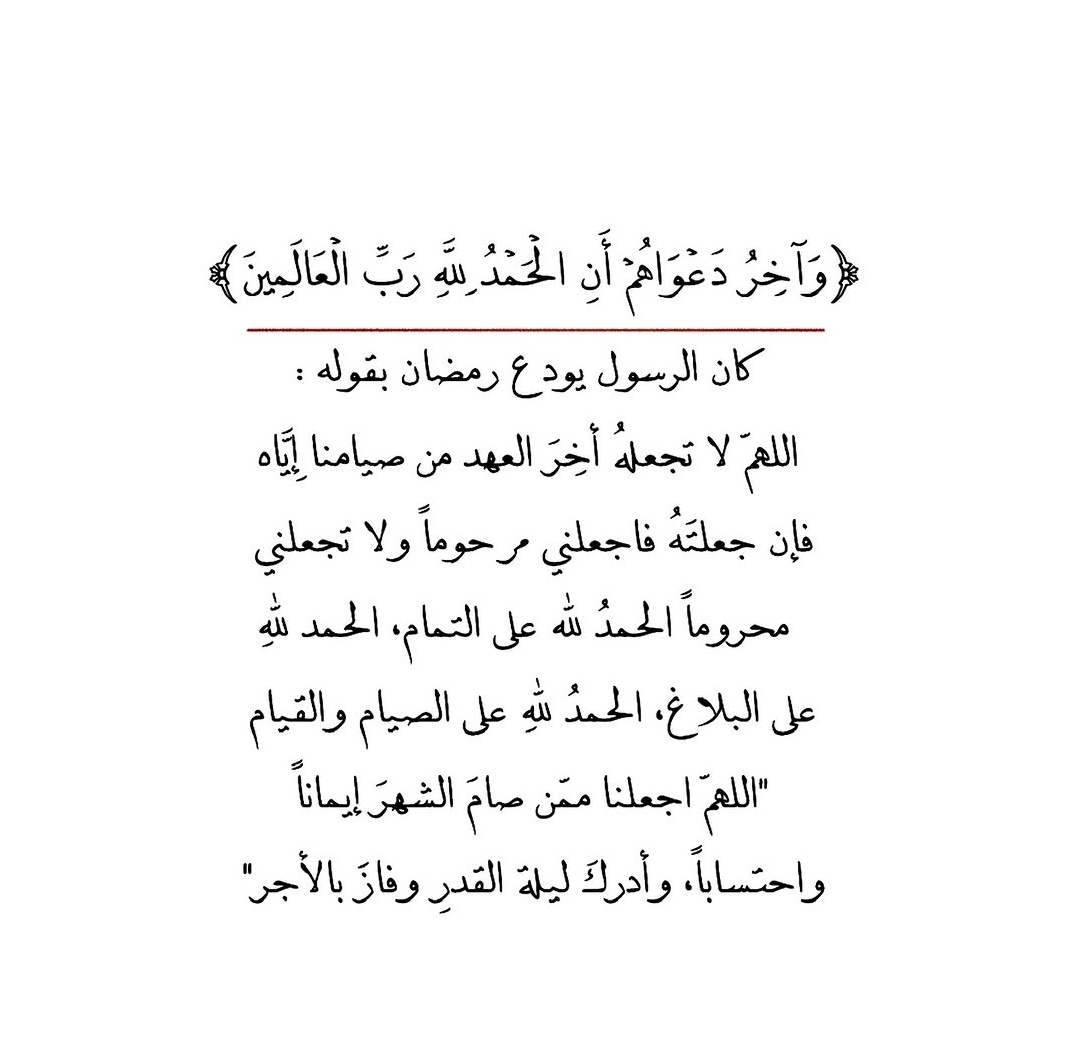 ﴿وَآخِرُ دَعْوَاهُمْ أَنِ الْحَمْدُ لِلَّهِ رَبِّ الْعَالَمِينَ﴾
كان الرسول يودع رمضان بقوله :
اللهمّ لا تجعلهُ أخِرَ العهد من صيامنا إيَّاه
فإن جعلتَهُ فاجعلني مرحوماً ولا تجعلني
محروماً الحمدُ لله على التمام، الحمد للهِ
على البلاغ، الحمدُ للهِ على الصيام والقيام
"اللهمّ اجعلنا ممّن صامَ الشهرَ إيماناً
واحتساباً، وأدركَ ليلة القدرِ وفازَ بالأجر"